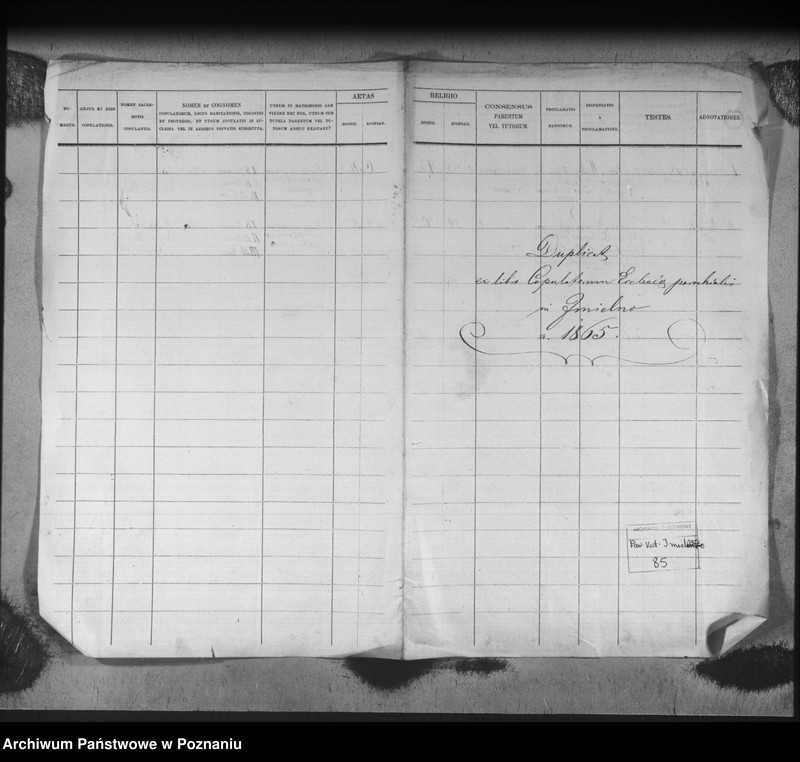 NU-
MERUS.
ANNUS ET DIES
COPULATIONIS.
NOMEN SACER-
DOTIS
COPULANTIS.
NOMEN ET COGNOMEN
COPULATORUM, LOCUS HABITATIONIS, CONDITIO
ET PROFESSIO, ET UTRUM COPULATIO IN EC-
CLESIA VEL IN AEDIBUS PRIVATIS SUSSECUTA.
UTRUM IN MATRIMONIO JAM
VIXERE NEC NON, UTRUM SUB
TUTELA PARENTUM VEL TU-
TORUM ADHUC EXISTANT?
AETAS
SPONSI.
SPONSAE.
RELIGIO
SPONSI.
SPONSAE.
CONSENSUS
PARENTUM
VEL TUTORUM.
PROCLAMATIO
BANNORUM.
DISPENSATIO
A
PROCLAMATIONE.
TESTES.
ADNOTATIONES.
Duplicat
ex libro Copulatorum Ecclesiae parochialis
in Imielno
a. 1865.
ARCHIWUM PAŃSTWOWE
Par. Kat. Imielno
85
Archiwum Państwowe w Poznaniu